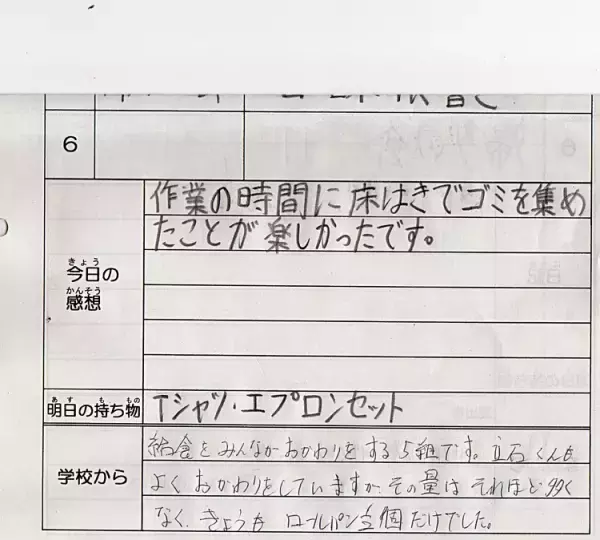 6
作業の時間に床はきでゴミを集め
たことが楽しかったです。
きょう
今日の
かんそう
感想
あす も もの
明日の持ち物
Tシャツ・エプロンセット
学校から
給食をみんなおかわりをする5組です。立石くんも
よくおかわりをしていますが、その量はそれほど多く
なく、きょうも ロールパン 個だけでした。